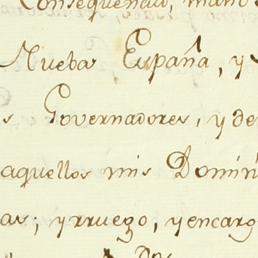 Consequencia, man
Nueba España, y
s Governadores, y de
aquellos mis Domin
as; y rruego, y encarg